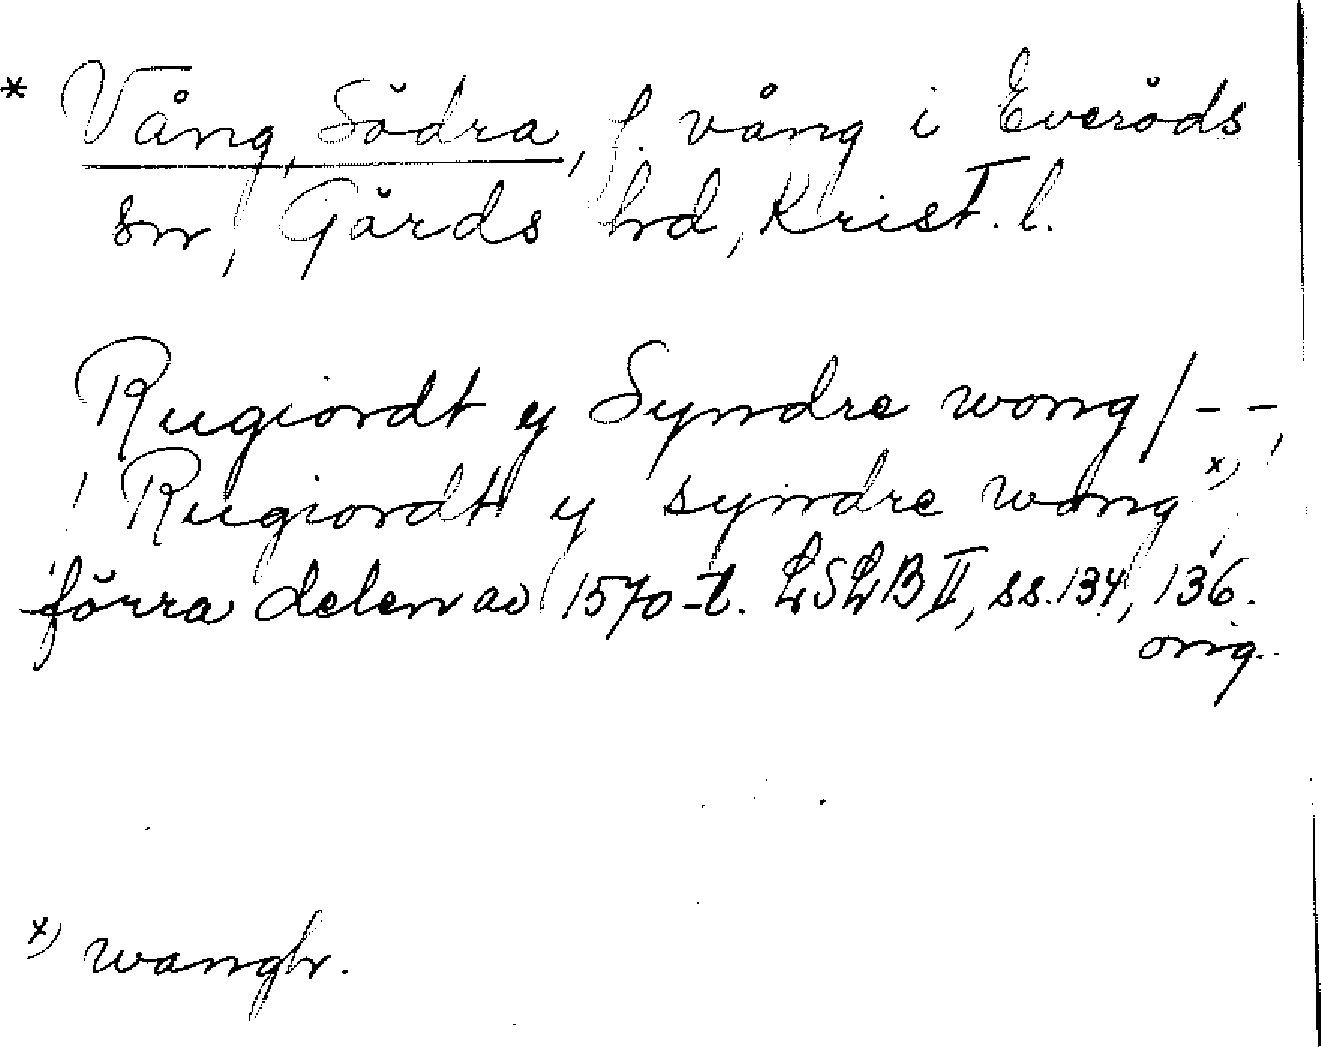 * Vång, Södra, f. vång i Everöds
sn, Gärds hd, Krist. l.
Rugiordt y Syndre wong / - -,
Rugiordt y syndre wong x),
förra delen av 1570-t. LSLB II, ss. 134, 136.
orig.
x) wangh.